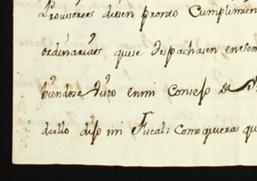 Provisores dièsen pronto Cumplimien
ordinarias quese despachasen en
biendose visto enmi Consejo de
deello dijo mi Fiscal; Como quiera qu